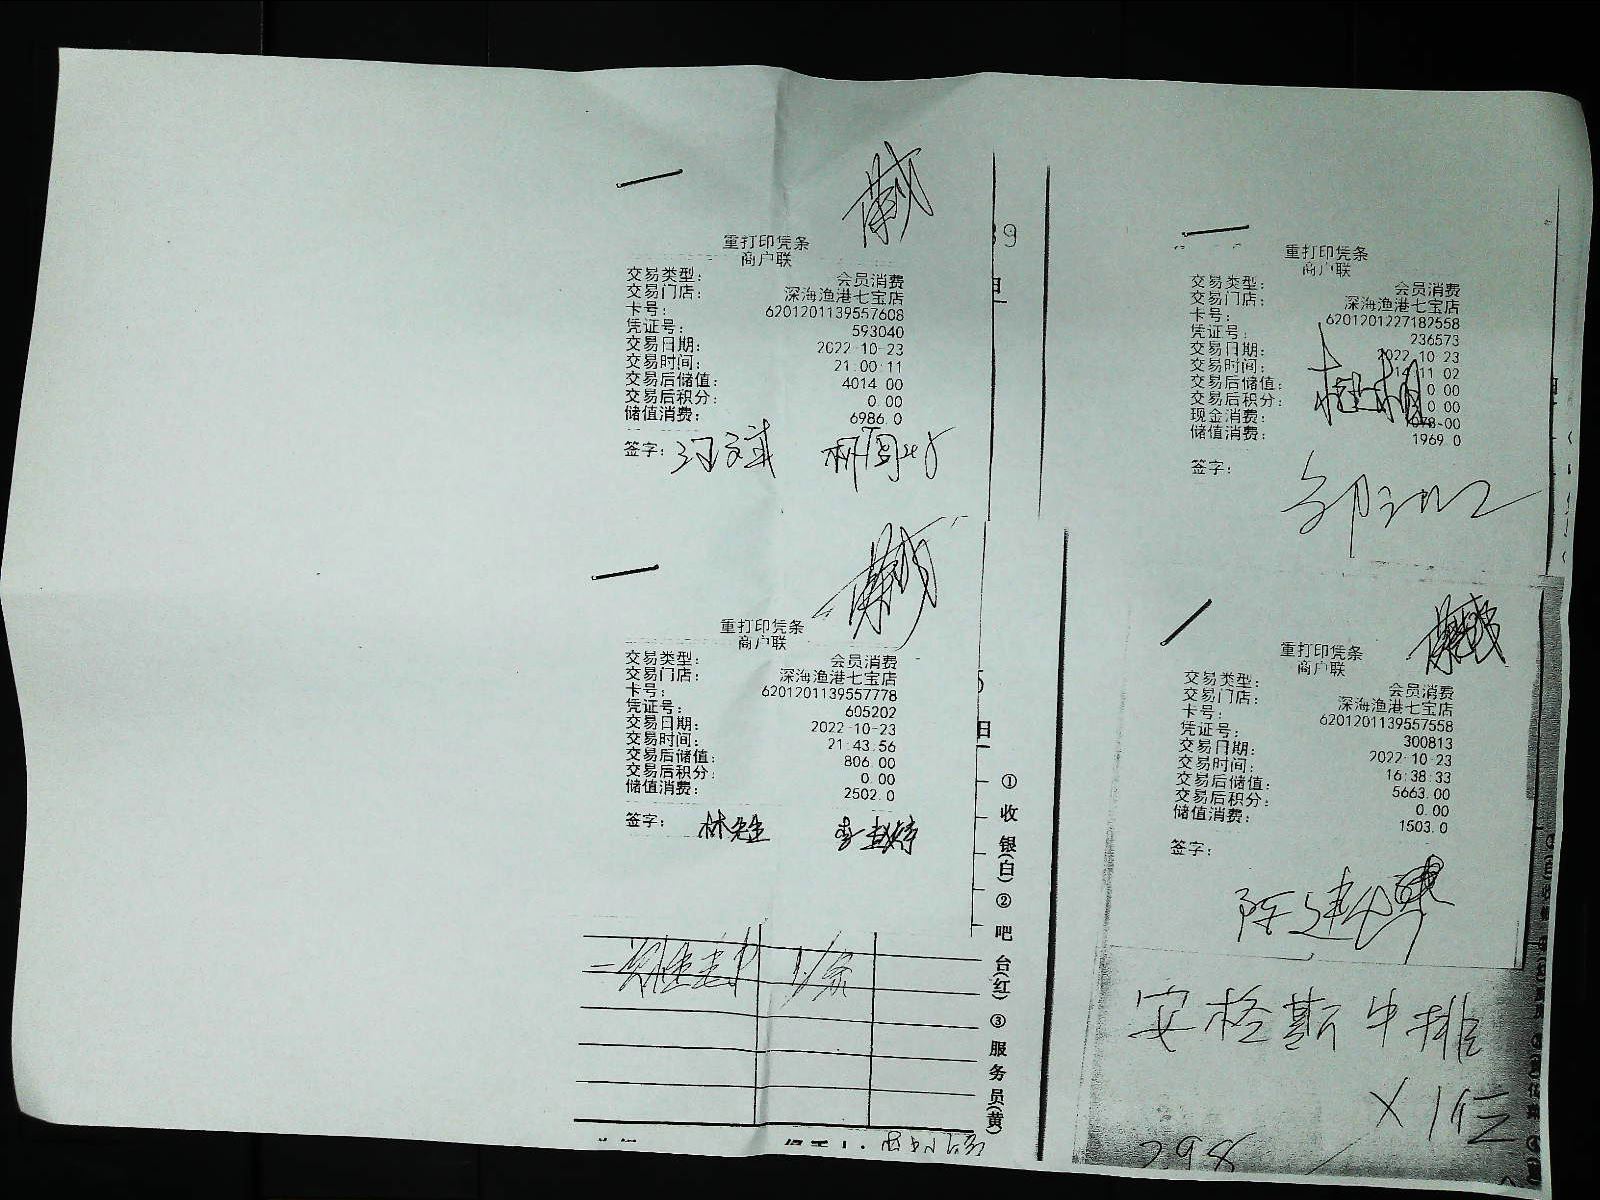 重打印凭条
商户联
交易类型： 会员消费
交易门店： 深海渔港七宝店
卡号： 6201201139557608
凭证号： 593040
交易日期： 2022-10-23
交易时间： 21:00:11
交易后储值： 4014.00
交易后积分： 0.00
储值消费： 6986.0
签字：
重打印凭条
商户联
交易类型： 会员消费
交易门店： 深海渔港七宝店
卡号： 6201201139557778
凭证号： 605202
交易日期： 2022-10-23
交易时间： 21:43:56
交易后储值： 806.00
交易后积分： 0.00
储值消费： 2502.0
签字： 林先生
①收银(白)②吧台(红)③服务员(黄)
重打印凭条
商户联
交易类型： 会员消费
交易门店： 深海渔港七宝店
卡号： 6201201227182558
凭证号： 236573
交易日期： 2022-10-23
交易时间：
交易后储值： 0.00
交易后积分： 0.00
现金消费：
储值消费： 1969.0
签字：
重打印凭条
商户联
交易类型： 会员消费
交易门店： 深海渔港七宝店
卡号： 6201201139557558
凭证号： 300813
交易日期： 2022-10-23
交易时间： 16:38:33
交易后储值： 5663.00
交易后积分： 0.00
储值消费： 1503.0
签字：
安格斯牛排
298